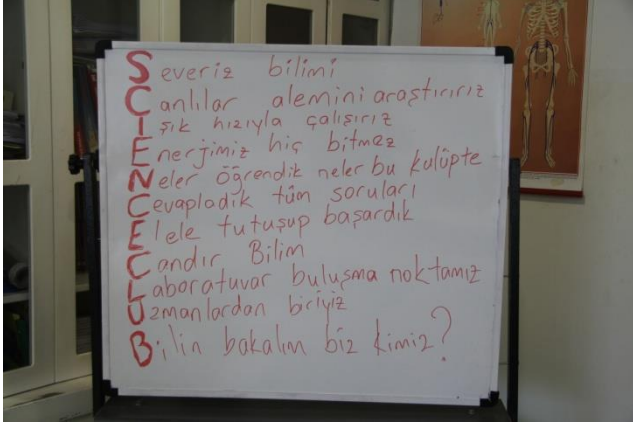 Severiz bilimi
Canlılar alemini araştırırız
Işık hızıyla çalışırız
Enerjimiz hiç bitmez
Neler öğrendik neler bu kulüpte
Cevapladık tüm soruları
Elele tutuşup başardık
Candır Bilim
Labaratuvar buluşma noktamız
Uzmanlardan biriyiz
Bilin bakalım biz kimiz?